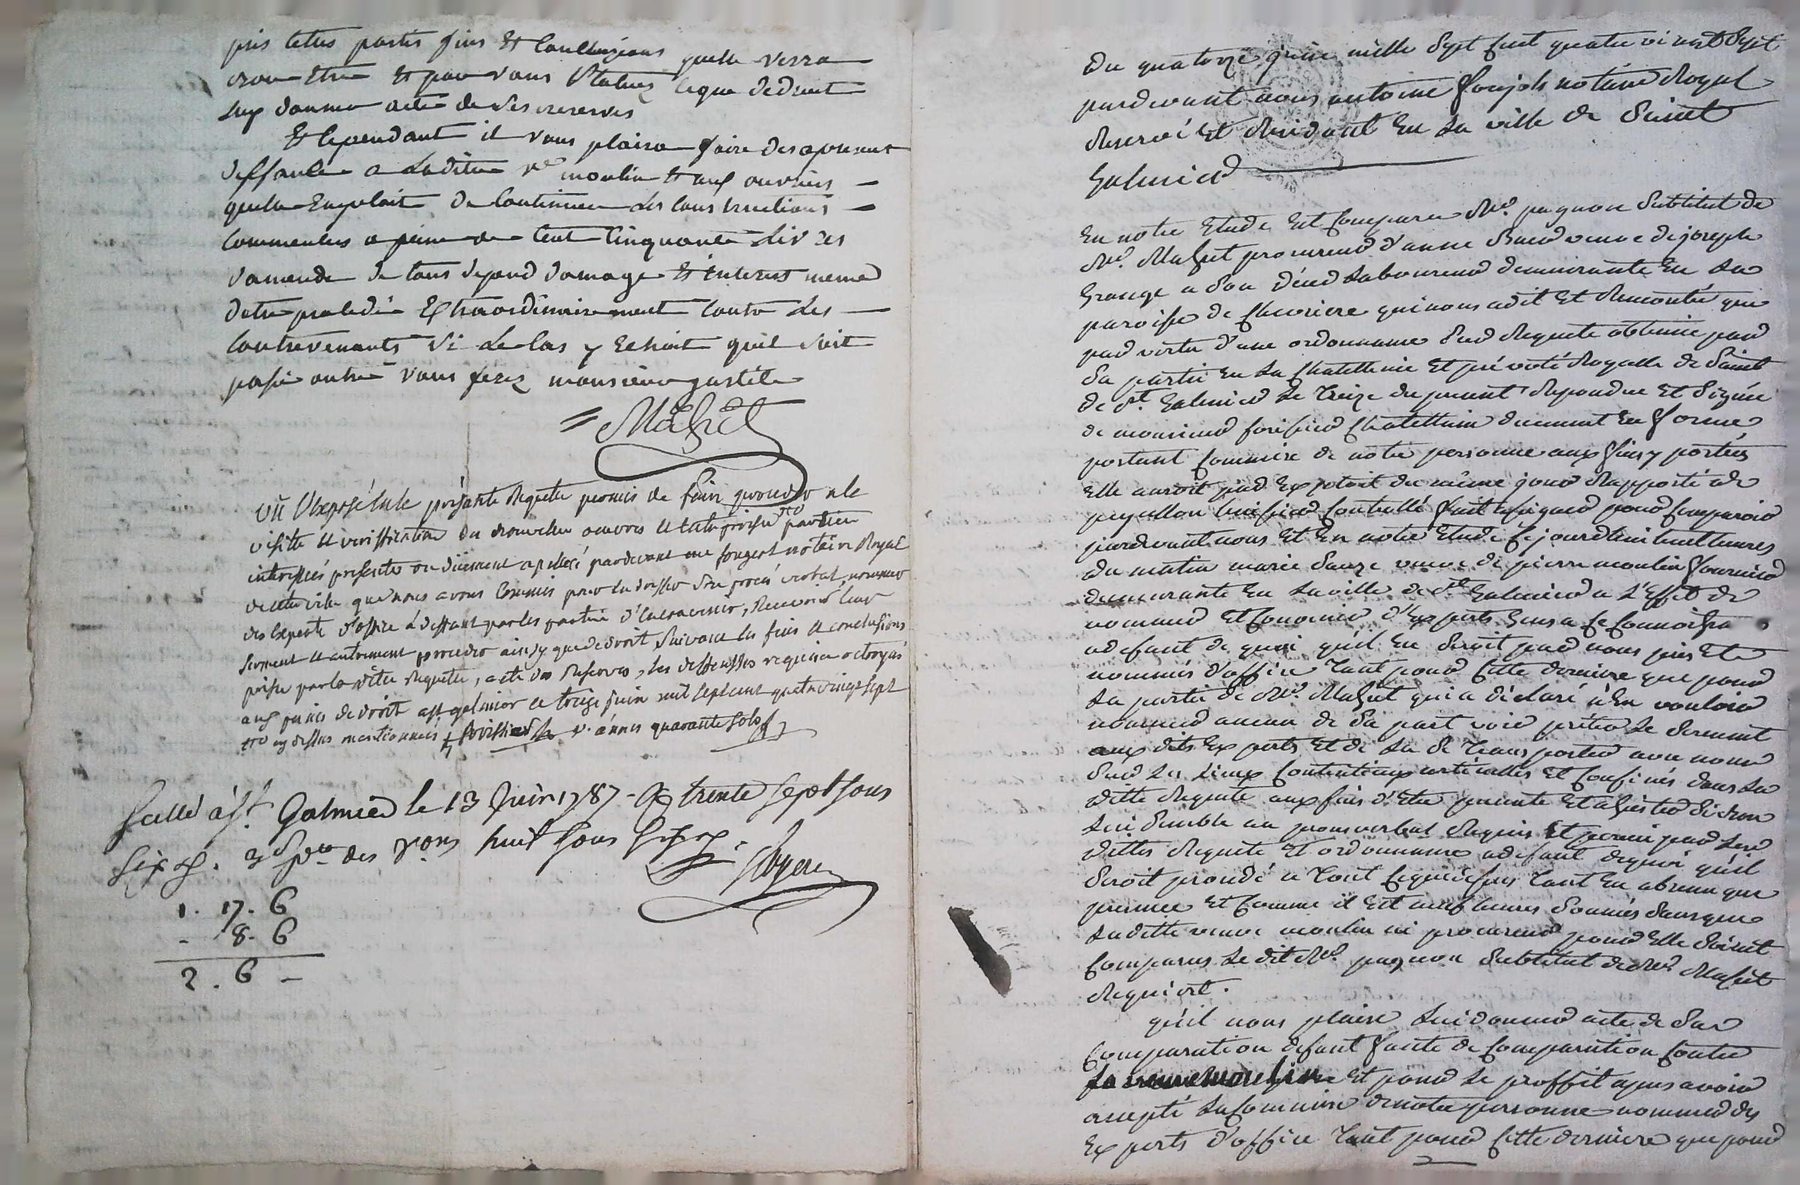 pris telles parties fins Et Conclusions quelle verra
Et pour vous
donner acte de ses reserves
Et Cependant il vous plaira faire des apresent
deffense a Ladite ve moulin Et aux ouvriers
quelle Employoit de Continuer Les Constructions
Commencées a peine de Cent Cinquante Livres
damende de tous depend domage Et interest meme
detre procedé Extraordinairement Contre Les
Contrevenants Si Le Cas y Echoit quil soit
passé outre vous ferez monsieur justice
Mahet
vû l'exposé en la présente Requete permis de faire proceder a la
visite et veriffication du nouvel oeuvre
interessées presentes ou duement apellées pardevant me notaire Royal
de cette ville que nous avons Commis pour en dresser son procès verbal, nommer
des Experts d'office à deffaut par les parties d'en convenir, Recevoir leur
serment et autrement proceder ainsy que de droit suivant les fins et conclusions
prises par la ditte Requete, acte des Reserves, les deffenses requises octroyées
aux peines de droit a st galmier ce treize juin mil sept cent quatre vingt sept
cy dessus mentionnés quarante sols
Scellé à St. Galmier le 13 Juin 1787 trente sept sous
Six d. des huit sous Six d.
1. 17. 6
- 8. 6
2. 6 -
Du quatorze juin mille sept cent quatre vingt Sept
pardevant nous antoine notaire Royal
Reservé Et Residant En La ville de Saint
Galmier
En notre Etude Est Comparu Me. pagnon Substitut de
Me. Mahet procureur d'anne veuve de joseph
Grange a Son vivant Laboureur demeurante En La
paroisse de Cheuriere qui nous a dit Et Remontré que
par vertu d'une ordonnance Sur Requete obtenue par
Sa partie En La Chatellenie Et prévôté Royalle de Saint
de St. Galmier Le Treize du présent Repondue Et Signée
de monsieur Chatellain duement En forme
portant Commission de notre personne aux fins y portées
Elle auroit par Exploit du même jour Rapporté de
Controllé fait assigner pour Comparoir
pardevant nous Et En notre Etude Cejourdhui huit heures
du matin marie veuve de pierre moulin
demeurante En La ville de St. Galmier a L'Effet de
nommer Et Convenir d'Experts Gens a Ce Connoissants
a defaut de quoi qu'il En Seroit par nous pris Et
nommés d'office Tant pour Cette derniere que pour
La partie de Me. Mahet qui a déclaré n'En vouloir
nommer aucun de Sa part voir prêter Le Serment
aux dits Experts Et de La Se Transporter avec nous
Sur Les Lieux Contentieux articullés Et Confinés dans La
ditte Requete aux fins d'Etre présente Et assister Si bon
Lui Semble au procès verbal Requis Et permis par Les
dittes Requete Et ordonnance a defaut dequoi qu'il
Seroit procédé a Tout Ce que dessus Tant En absence que
presence Et Comme il Est neuf heures Sonnées Sans que
Laditte veuve moulin ni procureur pour Elle Soient
Comparus Le dit Me. pagnon Substitut de Me. Mahet
Requiert.
qu'il nous plaise Lui donner acte de Sa
Comparution défaut faute de Comparution Contre
La veuve Moulin Et pour Le proffit apres avoir
accepté La Commission de notre personne nommer des
Experts d'office Tant pour Cette derniere que pour